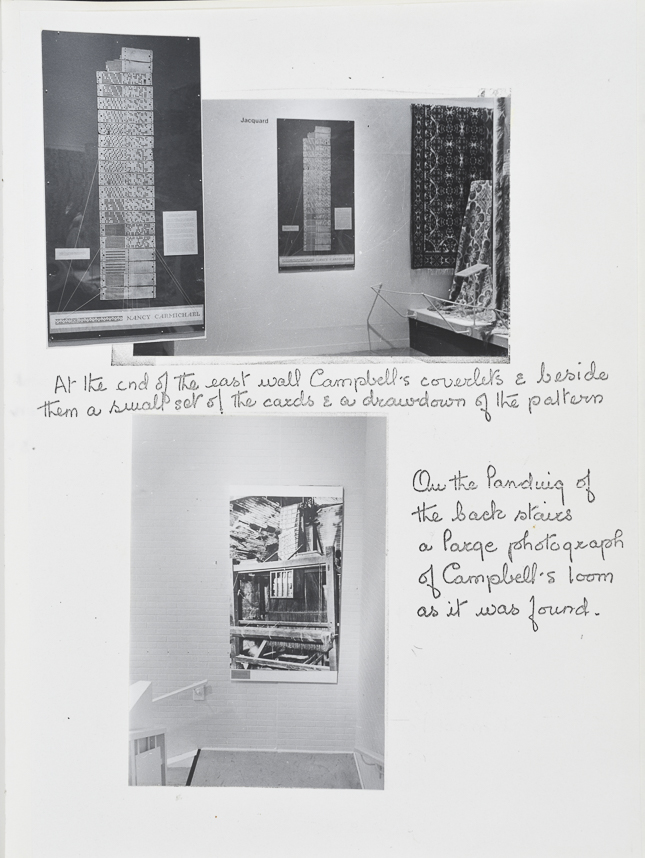 Jacquard
NANCY CARMICHAEL
At the end of the east wall Campbell's coverlets & beside
them a small set of the cards & a drawdown of the pattern
On the landing of
the back stairs
a large photograph
of Campbell's loom
as it was found.